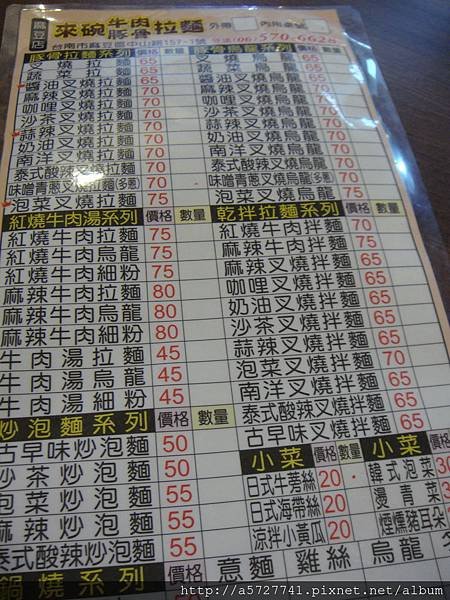 麻豆店
來碗 牛肉 豚骨 拉麵 外帶 內用桌號
台南市麻豆區中山路157-1號 (06)570-6628
豚骨拉麵系列 價格 數量
叉燒拉麵 65
蔬菜拉麵 65
醬油叉燒拉麵 70
麻辣叉燒拉麵 70
咖哩叉燒拉麵 70
沙茶叉燒拉麵 70
蒜辣叉燒拉麵 70
奶油叉燒拉麵 70
南洋叉燒拉麵 70
泰式酸辣叉燒拉麵 70
味噌青蔥叉燒拉麵(多蔥) 70
泡菜叉燒拉麵 75
豚骨烏龍系列 價格 數量
叉燒烏龍 65
蔬菜烏龍 65
醬油叉燒烏龍 70
麻辣叉燒烏龍 70
咖哩叉燒烏龍 70
沙茶叉燒烏龍 70
蒜辣叉燒烏龍 70
奶油叉燒烏龍 70
南洋叉燒烏龍 70
泰式酸辣叉燒烏龍 70
味噌青蔥叉燒烏龍(多蔥) 70
泡菜叉燒烏龍 75
紅燒牛肉湯系列 價格 數量
紅燒牛肉拉麵 75
紅燒牛肉烏龍 75
紅燒牛肉細粉 75
麻辣牛肉拉麵 80
麻辣牛肉烏龍 80
麻辣牛肉細粉 80
牛肉湯拉麵 45
牛肉湯烏龍 45
牛肉湯細粉 45
乾拌拉麵系列 價格 數量
紅燒牛肉拌麵 70
麻辣牛肉拌麵 75
麻辣叉燒拌麵 65
咖哩叉燒拌麵 65
奶油叉燒拌麵 65
沙茶叉燒拌麵 65
蒜辣叉燒拌麵 65
泡菜叉燒拌麵 70
南洋叉燒拌麵 65
泰式酸辣叉燒拌麵 65
古早味叉燒拌麵 65
炒泡麵系列 價格 數量
古早味炒泡麵 50
沙茶炒泡麵 50
泡菜炒泡麵 55
麻辣炒泡麵 55
泰式酸辣炒泡麵 55
小菜 價格 數量
日式牛蒡絲 20
日式海帶絲 20
涼拌小黃瓜 20
小菜 價格
韓式泡菜
燙青菜
煙燻豬耳朵
鍋燒系列 價格 意麵 雞絲 烏龍
http://a5727741.pixnet.net/album